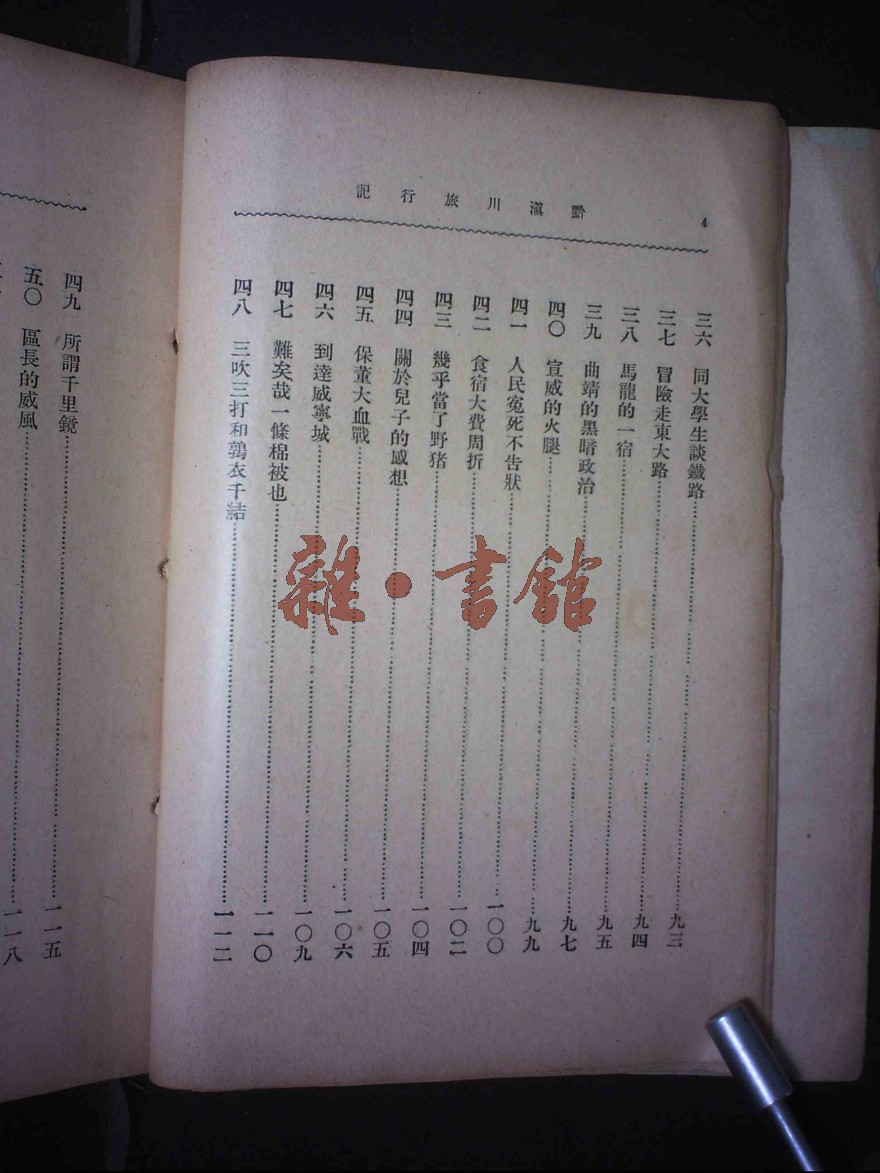 4
黔滇川旅行記
三六 同大學生談鐵路……九三
三七 冒險走東大路……九四
三八 馬龍的一宿……九五
三九 曲靖的黑暗政治……九七
四〇 宣威的火腿……九九
四一 人民寃死不告狀……一〇〇
四二 食宿大費周折……一〇二
四三 幾乎當了野猪……一〇四
四四 關於兒子的感想……一〇五
四五 保董大血戰……一〇六
四六 到達威寧城……一〇九
四七 難矣哉一條棉被也……一一〇
四八 三吹三打和鶉衣千結……一一二
四九 所謂千里鏡……一一五
五〇 區長的威風……一一八
雜·書館